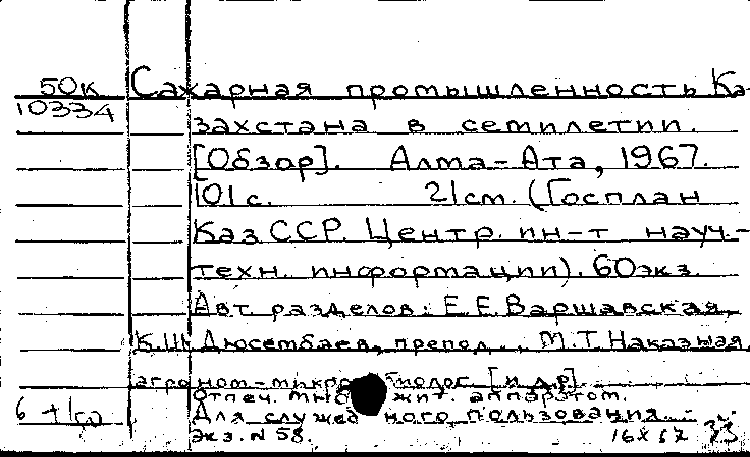 50К Сахарная промышленность Ка-
10334
захстана в семилетии.
[Обзор]. Алма-Ата, 1967.
101 с. 21 см. (Госплан
КазССР. Центр. ин-т науч.-
техн. информации). 60 экз.
Авт. разделов: Е.Е. Варшавская,
К.Ш. Дюсембаев, препод., М.Т. Наказная,
агроном-микробиолог [и др.]
Отпеч. множит. аппаратом.
6 Для служебного пользования.
Экз. N 58.